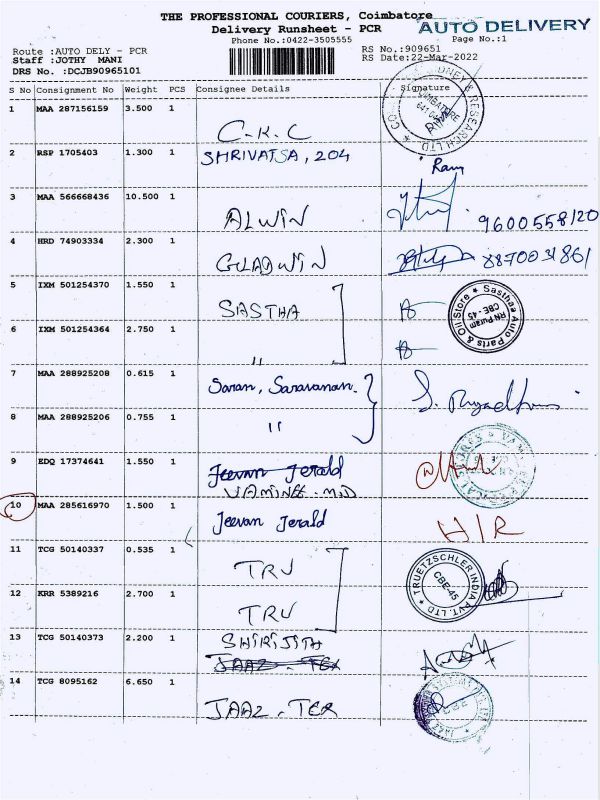 THE PROFESSIONAL COURIERS, Coimbatore
AUTO DELIVERY
Delivery Runsheet - PCR
Phone No.:0422-3505555
Page No.:1
Route :AUTO DELY - PCR
RS No.:909651
Staff :JOTHY MANI
RS Date:22-Mar-2022
DRS No. :DCJB90965101
S No Consignment No Weight PCS Consignee Details Signature
1 MAA 287156159 3.500 1 C.K.C
2 RSP 1705403 1.300 1 SHRIVATSA, 204 Ram
3 MAA 566668436 10.500 1 ALWIN 9600558120
4 HRD 74903334 2.300 1 GLADWIN 8870031861
5 IXM 501254370 1.550 1 SASTHA
Sasthaa Auto Parts & Oil Store * RN Puram CBE-45
6 IXM 501254364 2.750 1 "
7 MAA 288925208 0.615 1 Saran, Saravanan.
8 MAA 288925206 0.755 1 "
9 EDQ 17374641 1.550 1 Jeevan Jerald
VIAMINEE. M.D
10 MAA 285616970 1.500 1 Jeevan Jerald H/R
11 TCG 50140337 0.535 1 TRU
TRUETZSCHLER INDIA PVT. LTD * CBE-45
12 KRR 5389216 2.700 1 TRU
13 TCG 50140373 2.200 1 SHIRIJITH
JAAZ. TEX
14 TCG 8095162 6.650 1 JAAZ. TEX